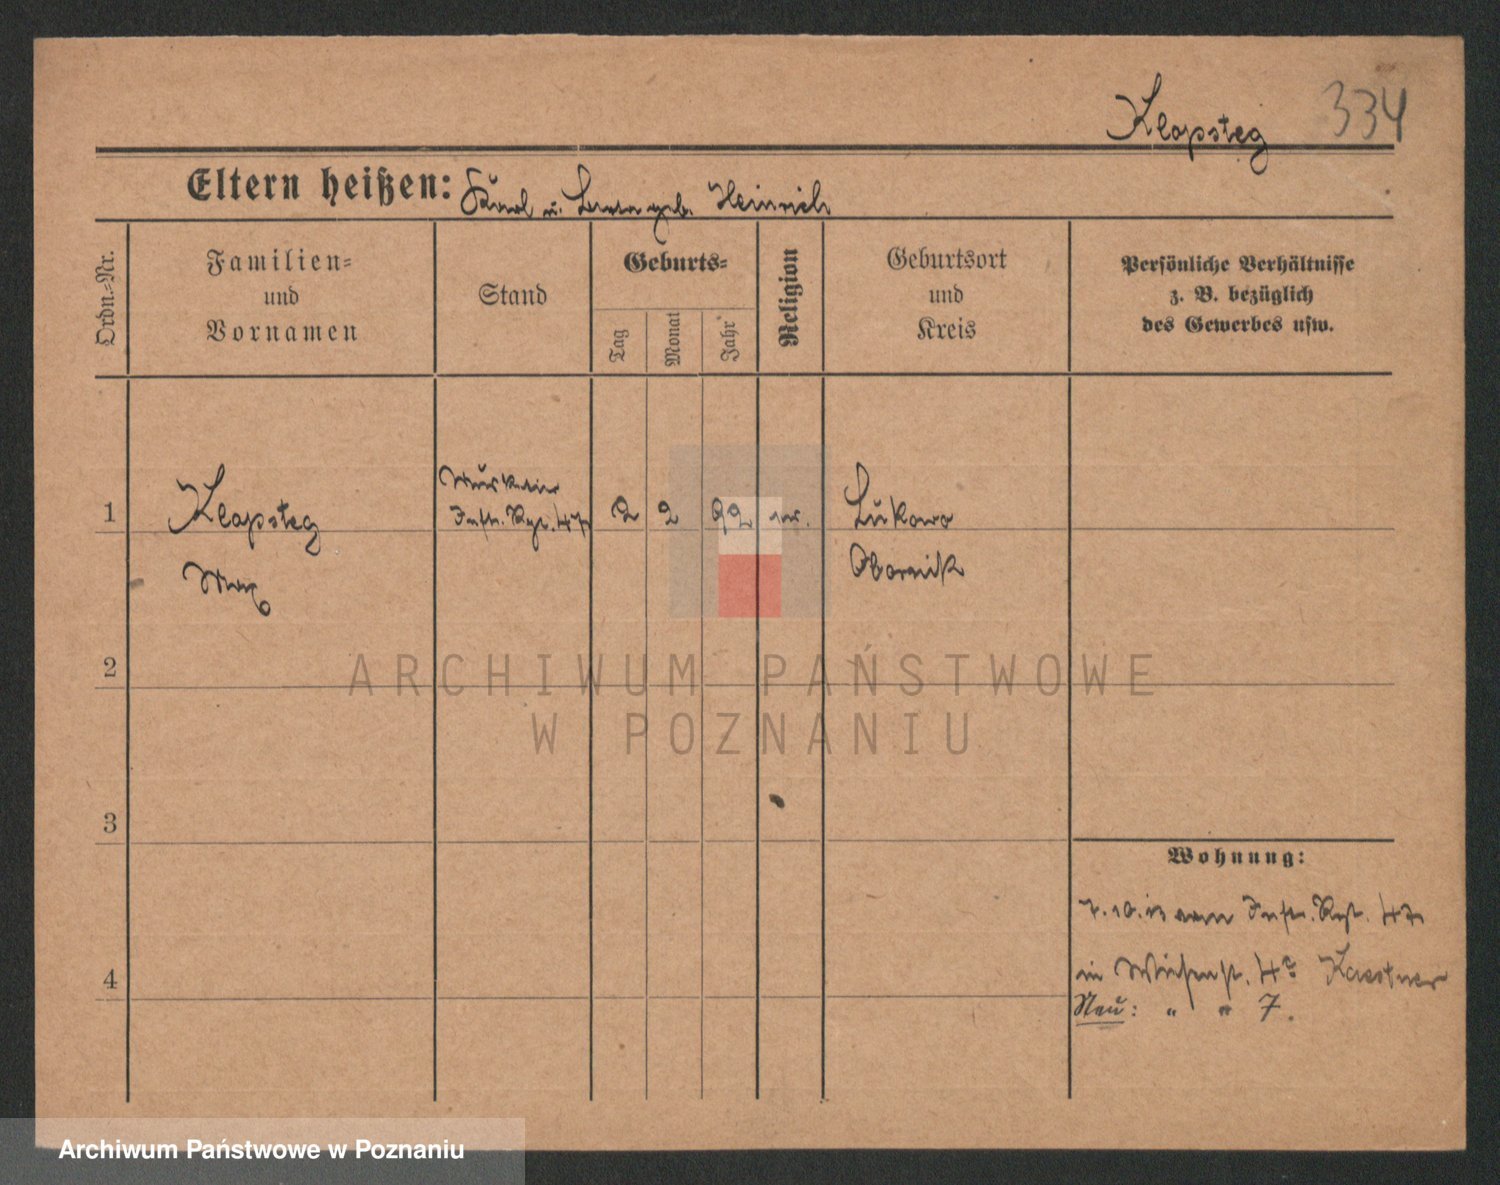 Klopsteg 334
Eltern heißen: Karl u. geb. Heinrich
Ordn.-Nr.
Familien- und Vornamen
Stand
Geburts-
Tag
Monat
Jahr
Religion
Geburtsort und Kreis
Persönliche Verhältnisse
z. B. bezüglich
des Gewerbes usw.
1
Klopsteg
Max
Musketier
Inftr. Rgt. 47
2 2 92 ev.
Lukowo
Obornik
2
3
4
Wohnung:
7. 10. 13 vom Inftr. Rgt. 47
in Wiesenstr. 4c Kaestner
Neu: " " 7.
ARCHIWUM PAŃSTWOWE
W POZNANIU
Archiwum Państwowe w Poznaniu